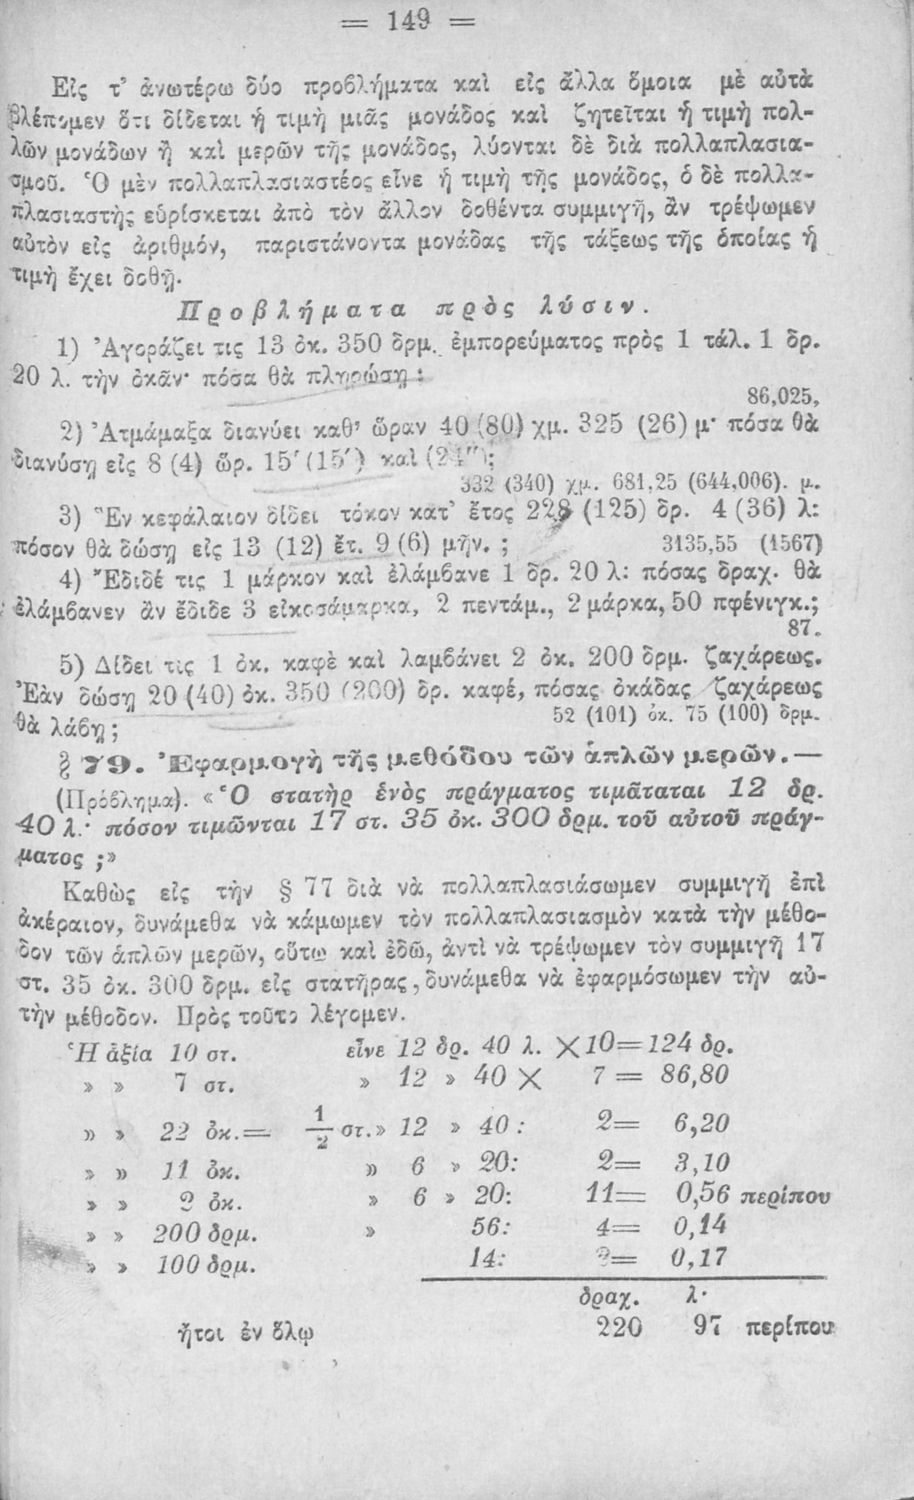 = 149 =
Εἰς τ' ἀνωτέρω δύο προβλήματα καὶ εἰς ἄλλα ὅμοια μὲ αὐτὰ
βλέπομεν ὅτι δίδεται ἡ τιμὴ μιᾶς μονάδος καὶ ζητεῖται ἡ τιμὴ πολ-
λῶν μονάδων ἢ καὶ μερῶν τῆς μονάδος, λύονται δὲ διὰ πολλαπλασια-
σμοῦ. Ὁ μὲν πολλαπλασιαστέος εἶνε ἡ τιμὴ τῆς μονάδος, ὁ δὲ πολλα-
πλασιαστὴς εὑρίσκεται ἀπὸ τὸν ἄλλον δοθέντα συμμιγῆ, ἂν τρέψωμεν
αὐτὸν εἰς ἀριθμόν, παριστάνοντα μονάδας τῆς τάξεως τῆς ὁποίας ἡ
τιμὴ ἔχει δοθῇ.
Προβλήματα πρὸς λύσιν.
1) Ἀγοράζει τις 13 ὀκ. 350 δρμ. ἐμπορεύματος πρὸς 1 τάλ. 1 δρ.
20 λ. τὴν ὀκᾶν· πόσα θὰ πληρώσῃ ;
86,025,
2) Ἀτμάμαξα διανύει καθ' ὥραν 40 (80) χμ. 325 (26) μ· πόσα θὰ
διανύσῃ εἰς 8 (4) ὥρ. 15' (15') καὶ (24'');
332 (340) χμ. 681,25 (644,006). μ.
3) Ἓν κεφάλαιον δίδει τόκον κατ' ἔτος 228 (125) δρ. 4 (36) λ:
πόσον θὰ δώσῃ εἰς 13 (12) ἔτ. 9 (6) μῆν. ;
3135,55 (1567)
4) Ἔδιδέ τις 1 μάρκον καὶ ἐλάμβανε 1 δρ. 20 λ: πόσας δραχ. θὰ
ἐλάμβανεν ἂν ἔδιδε 3 εἰκοσάμαρκα, 2 πεντάμ., 2 μάρκα, 50 πφένιγκ.;
87.
5) Δίδει τις 1 ὀκ. καφὲ καὶ λαμβάνει 2 ὀκ. 200 δρμ. ζαχάρεως.
Ἐὰν δώσῃ 20 (40) ὀκ. 350 (200) δρ. καφέ, πόσας ὀκάδας ζαχάρεως
θὰ λάβῃ ;
52 (101) ὀκ. 75 (100) δρμ.
§ 79. Ἐφαρμογὴ τῆς μεθόδου τῶν ἁπλῶν μερῶν.—
(Πρόβλημα). «Ὁ στατὴρ ἑνὸς πράγματος τιμᾶται 12 δρ.
40 λ.· πόσον τιμῶνται 17 στ. 35 ὀκ. 300 δρμ. τοῦ αὐτοῦ πράγ-
ματος ;»
Καθὼς εἰς τὴν § 77 διὰ νὰ πολλαπλασιάσωμεν συμμιγῆ ἐπὶ
ἀκέραιον, δυνάμεθα νὰ κάμωμεν τὸν πολλαπλασιασμὸν κατὰ τὴν μέθο-
δον τῶν ἁπλῶν μερῶν, οὕτω καὶ ἐδῶ, ἀντὶ νὰ τρέψωμεν τὸν συμμιγῆ 17
στ. 35 ὀκ. 300 δρμ. εἰς στατῆρας, δυνάμεθα νὰ ἐφαρμόσωμεν τὴν αὐ-
τὴν μέθοδον. Πρὸς τοῦτο λέγομεν.
Ἡ ἀξία 10 στ. εἶνε 12 δρ. 40 λ. × 10 = 124 δρ.
» » 7 στ. » 12 » 40 × 7 = 86,80
» » 22 ὀκ. = 1/2 στ. » 12 » 40 : 2 = 6,20
» » 11 ὀκ. » 6 » 20: 2 = 3,10
» » 2 ὀκ. » 6 » 20: 11 = 0,56 περίπου
» » 200 δρμ. » 56: 4 = 0,14
» » 100 δρμ. 14: 2 = 0,17
δραχ. λ·
ἤτοι ἐν ὅλῳ 220 97 περίπου